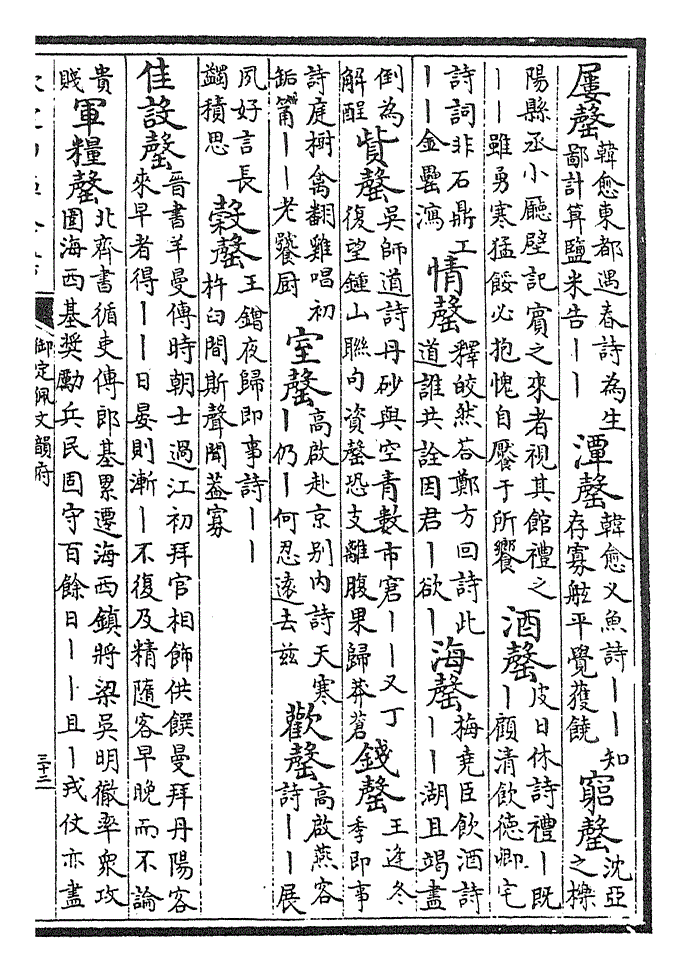 屢罄韓愈東都遇春詩為生鄙計算鹽米告——潭罄韓愈义魚詩——知存寡舷平覺獲饒窮罄沈亞之櫟
陽縣丞小廳壁記賓之來者視其館禮之——雖勇寒猛餒必抱愧自饜于所饗酒罄皮日休詩禮—既—顧清飲德卿宅
詩詞非石鼎工——金罍瀉情罄釋皎然荅鄭方回詩此道誰共詮因君—欲—海罄梅堯臣飲酒詩——湖且竭盡
倒為解酲貲罄吳師道詩丹砂與空青數市窘——又丁復望鍾山聯句資罄恐支離腹果歸莽蒼錢罄王逢冬季即事
詩庭樹禽翻雞唱初缻筩——老饕厨室罄高啟赴京别内詩天寒—仍—何忍遠去兹歡罄高啟燕客詩——展
夙好言長蠲積思穀罄王鏳夜歸即事詩——杵臼間斯聲聞葢寡
佳設罄晉書羊曼傳時朝士過江初拜官相飾供饌曼拜丹陽客來早者得——日晏則漸—不復及精隨客早晚而不論
貴賤軍糧罄北齊書循吏傳郎基累遷海西鎮將梁吳明徹率衆攻圍海西基奨勵兵民固守百餘日——且—戎仗亦盡
御定佩文韻府
三十二